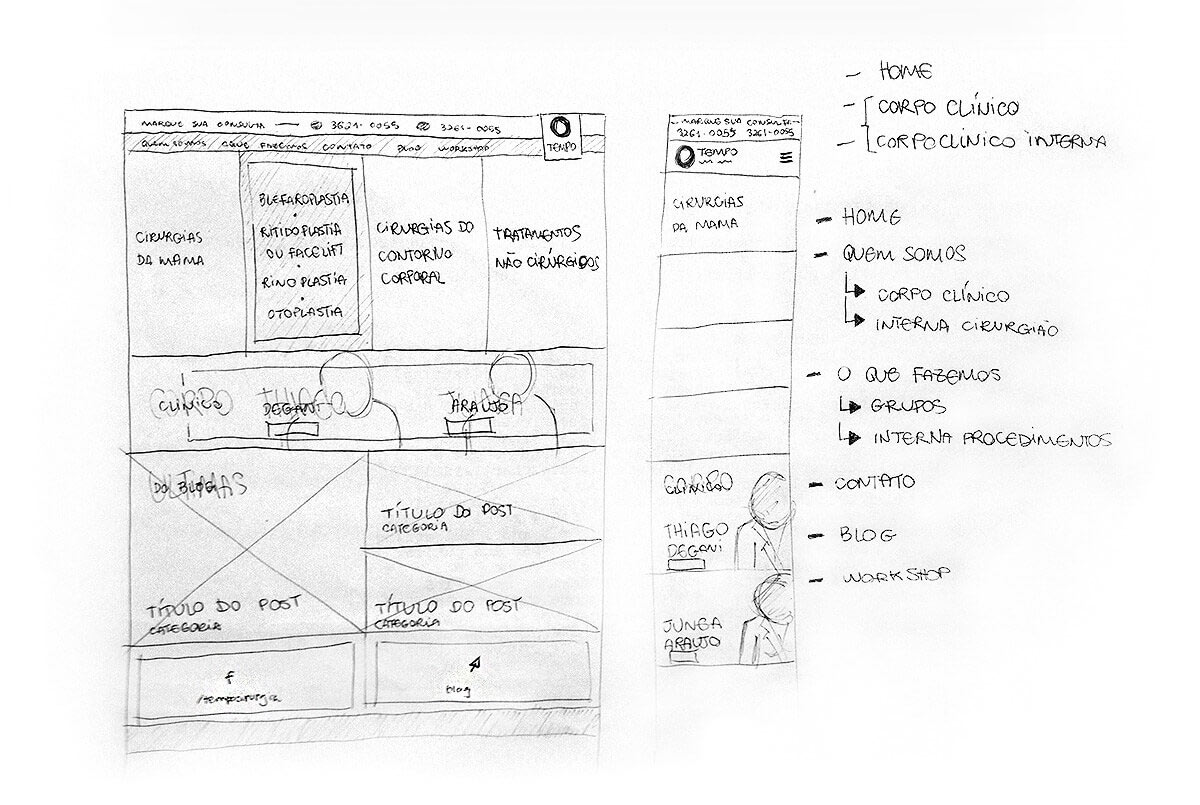 MARQUE SUA CONSULTA — 3621-0055 3261-0055
QUEM SOMOS O QUE FAZEMOS CONTATO BLOG WORKSHOP
TEMPO
CIRURGIAS
DA MAMA
BLEFAROPLASTIA
RITIDOPLASTIA
OU FACELIFT
RINOPLASTIA
OTOPLASTIA
CIRURGIAS DO
CONTORNO
CORPORAL
TRATAMENTOS
NÃO CIRÚRGICOS
CORPO
CLÍNICO
THIAGO
DEGANI
JUNEA
ARAUJO
ÚLTIMAS
DO BLOG
TÍTULO DO POST
CATEGORIA
TÍTULO DO POST
CATEGORIA
TÍTULO DO POST
CATEGORIA
f
blog
MARQUE SUA CONSULTA
3261-0055 3261-0055
TEMPO
CIRURGIAS
DA MAMA
CORPO
CLÍNICO
THIAGO
DEGANI
JUNEA
ARAUJO
- HOME
- CORPO CLÍNICO
- CORPO CLÍNICO INTERNA
- HOME
- QUEM SOMOS
CORPO CLÍNICO
INTERNA CIRURGIÃO
- O QUE FAZEMOS
GRUPOS
INTERNA PROCEDIMENTOS
- CONTATO
- BLOG
- WORKSHOP